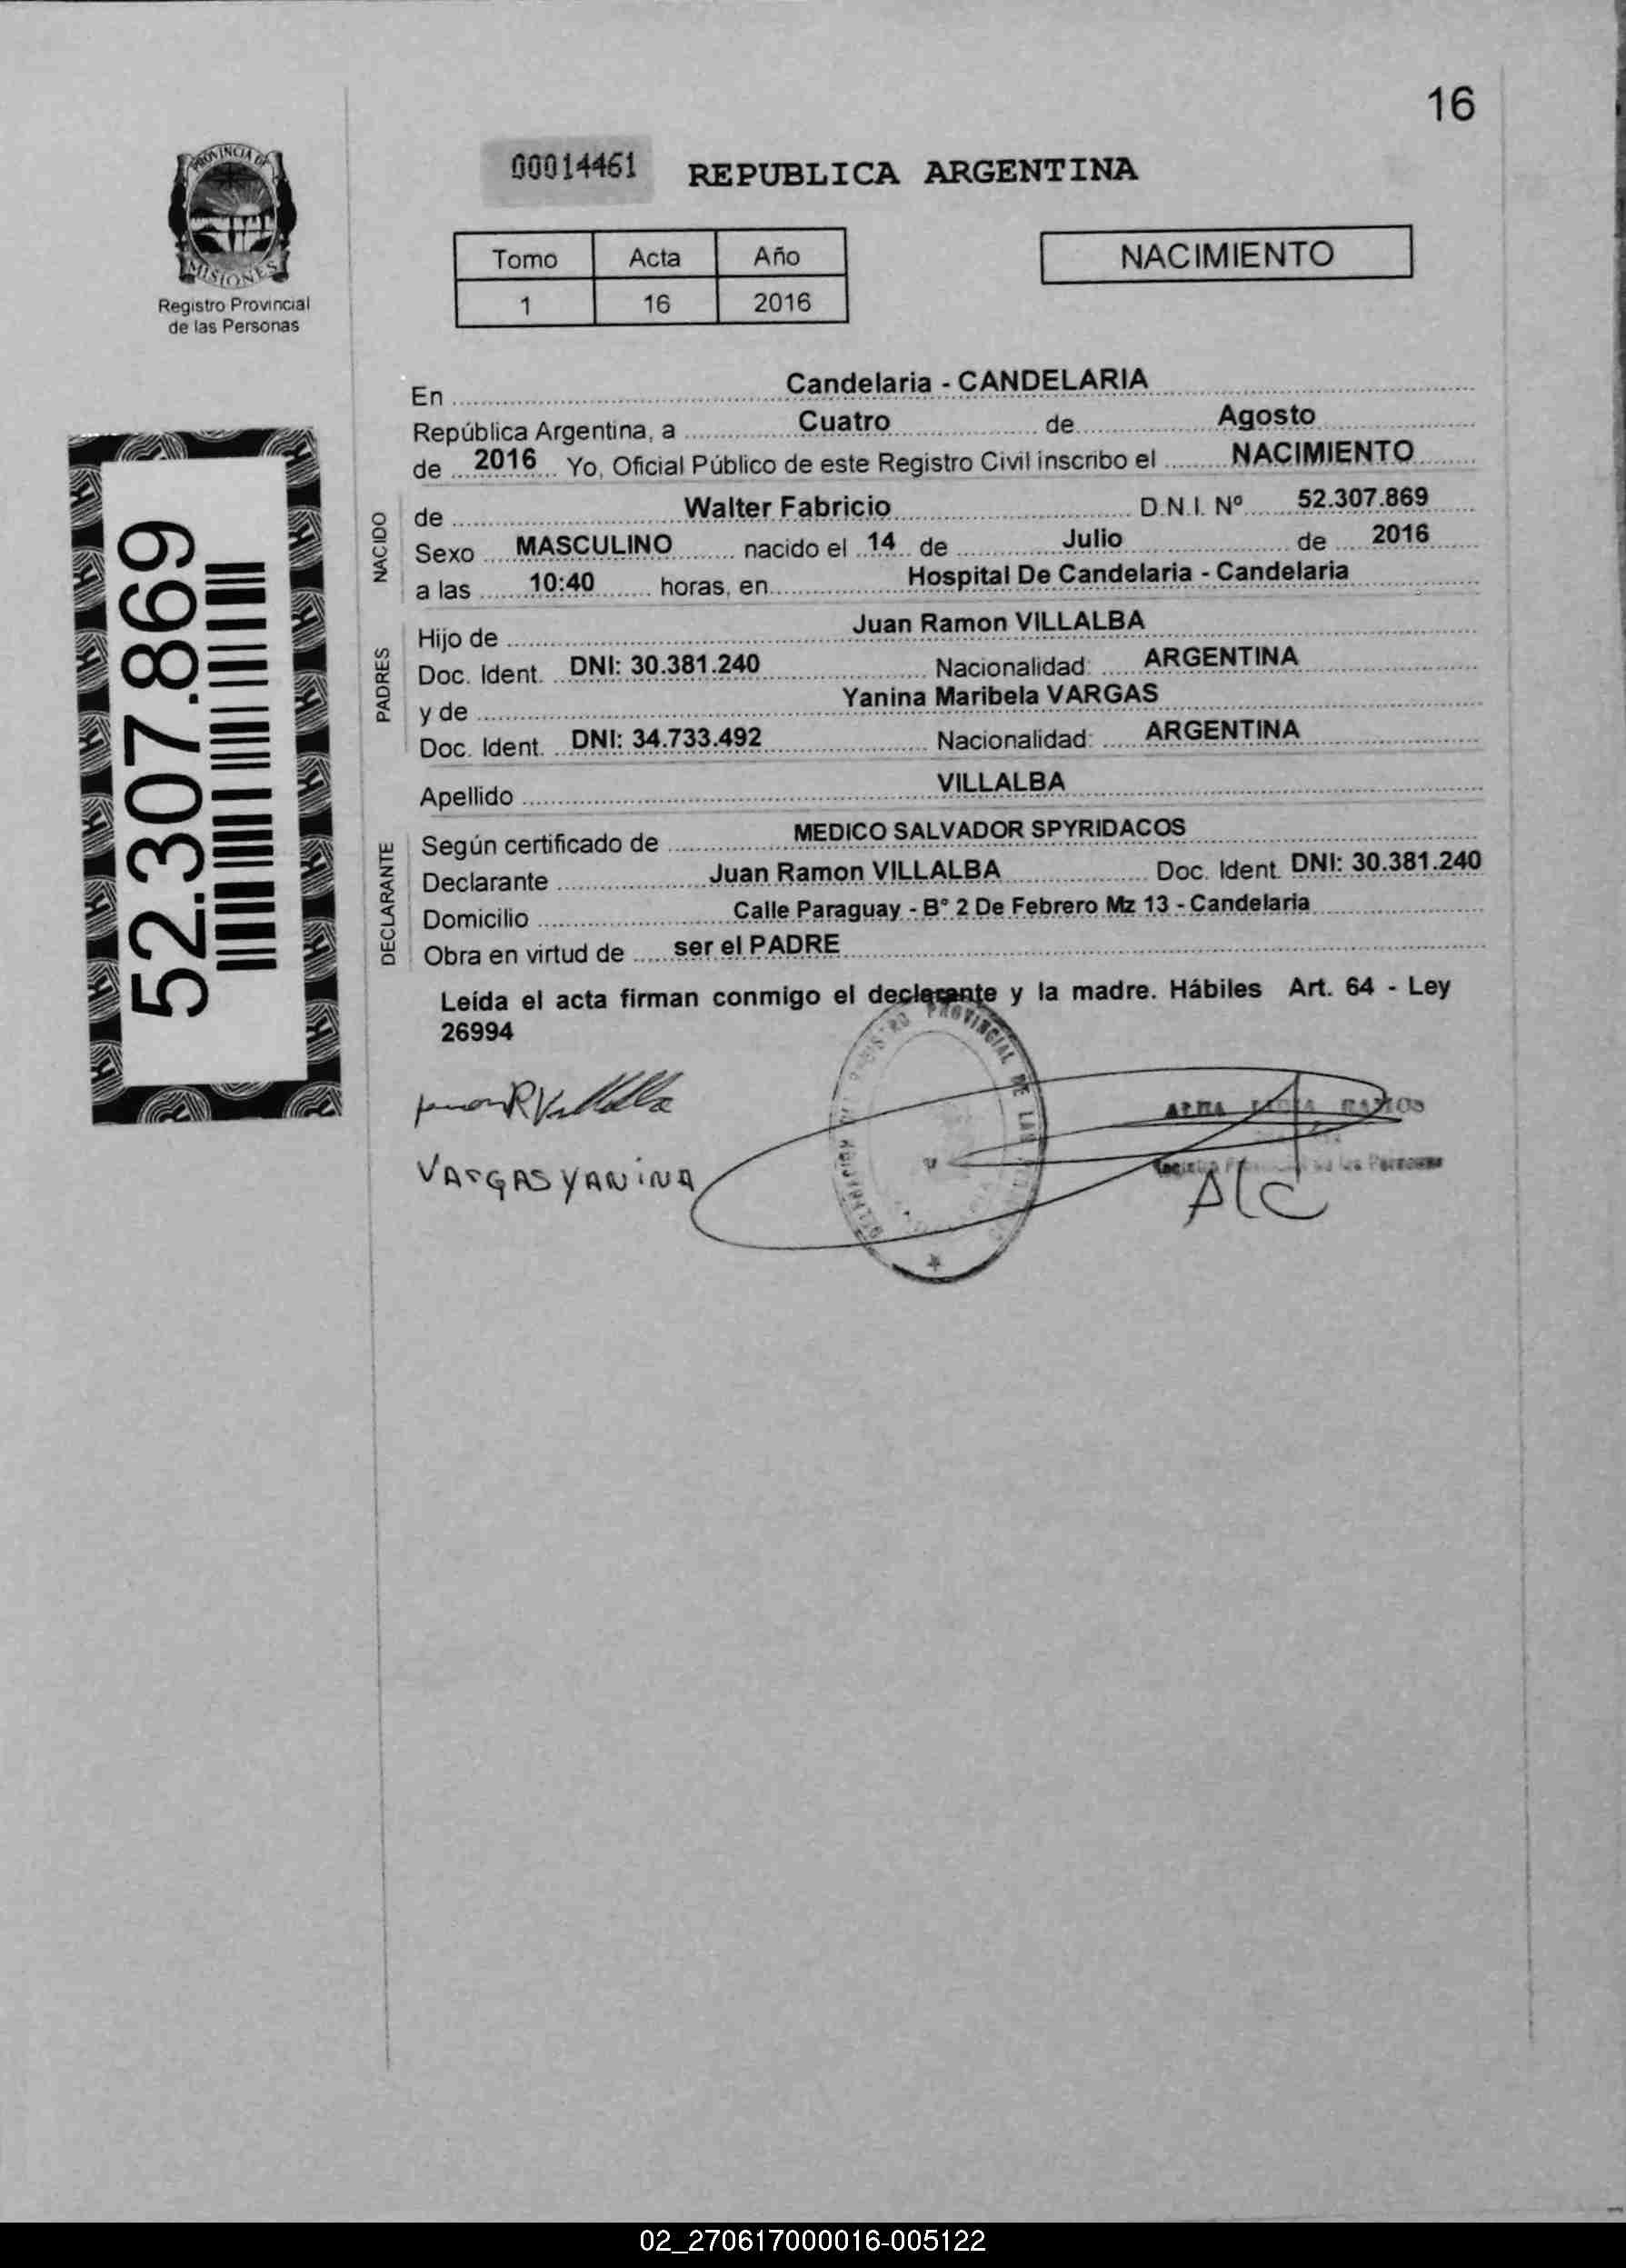 16
PROVINCIA DE
MISIONES
Registro Provincial
de las Personas
00014461 REPUBLICA ARGENTINA
Tomo Acta Año
1 16 2016
NACIMIENTO
52.307.869
En Candelaria - CANDELARIA
República Argentina, a Cuatro de Agosto
de 2016 Yo, Oficial Público de este Registro Civil inscribo el NACIMIENTO
NACIDO
de Walter Fabricio D.N.I. Nº 52.307.869
Sexo MASCULINO nacido el 14 de Julio de 2016
a las 10:40 horas, en Hospital De Candelaria - Candelaria
PADRES
Hijo de Juan Ramon VILLALBA
Doc. Ident. DNI: 30.381.240 Nacionalidad: ARGENTINA
y de Yanina Maribela VARGAS
Doc. Ident. DNI: 34.733.492 Nacionalidad: ARGENTINA
Apellido VILLALBA
DECLARANTE
Según certificado de MEDICO SALVADOR SPYRIDACOS
Declarante Juan Ramon VILLALBA Doc. Ident. DNI: 30.381.240
Domicilio Calle Paraguay - B° 2 De Febrero Mz 13 - Candelaria
Obra en virtud de ser el PADRE
Leída el acta firman conmigo el declarante y la madre. Hábiles Art. 64 - Ley
26994
PROVINCIAL DE LAS
VARGAS YANINA
RAMOS
de las Personas
02_270617000016-005122